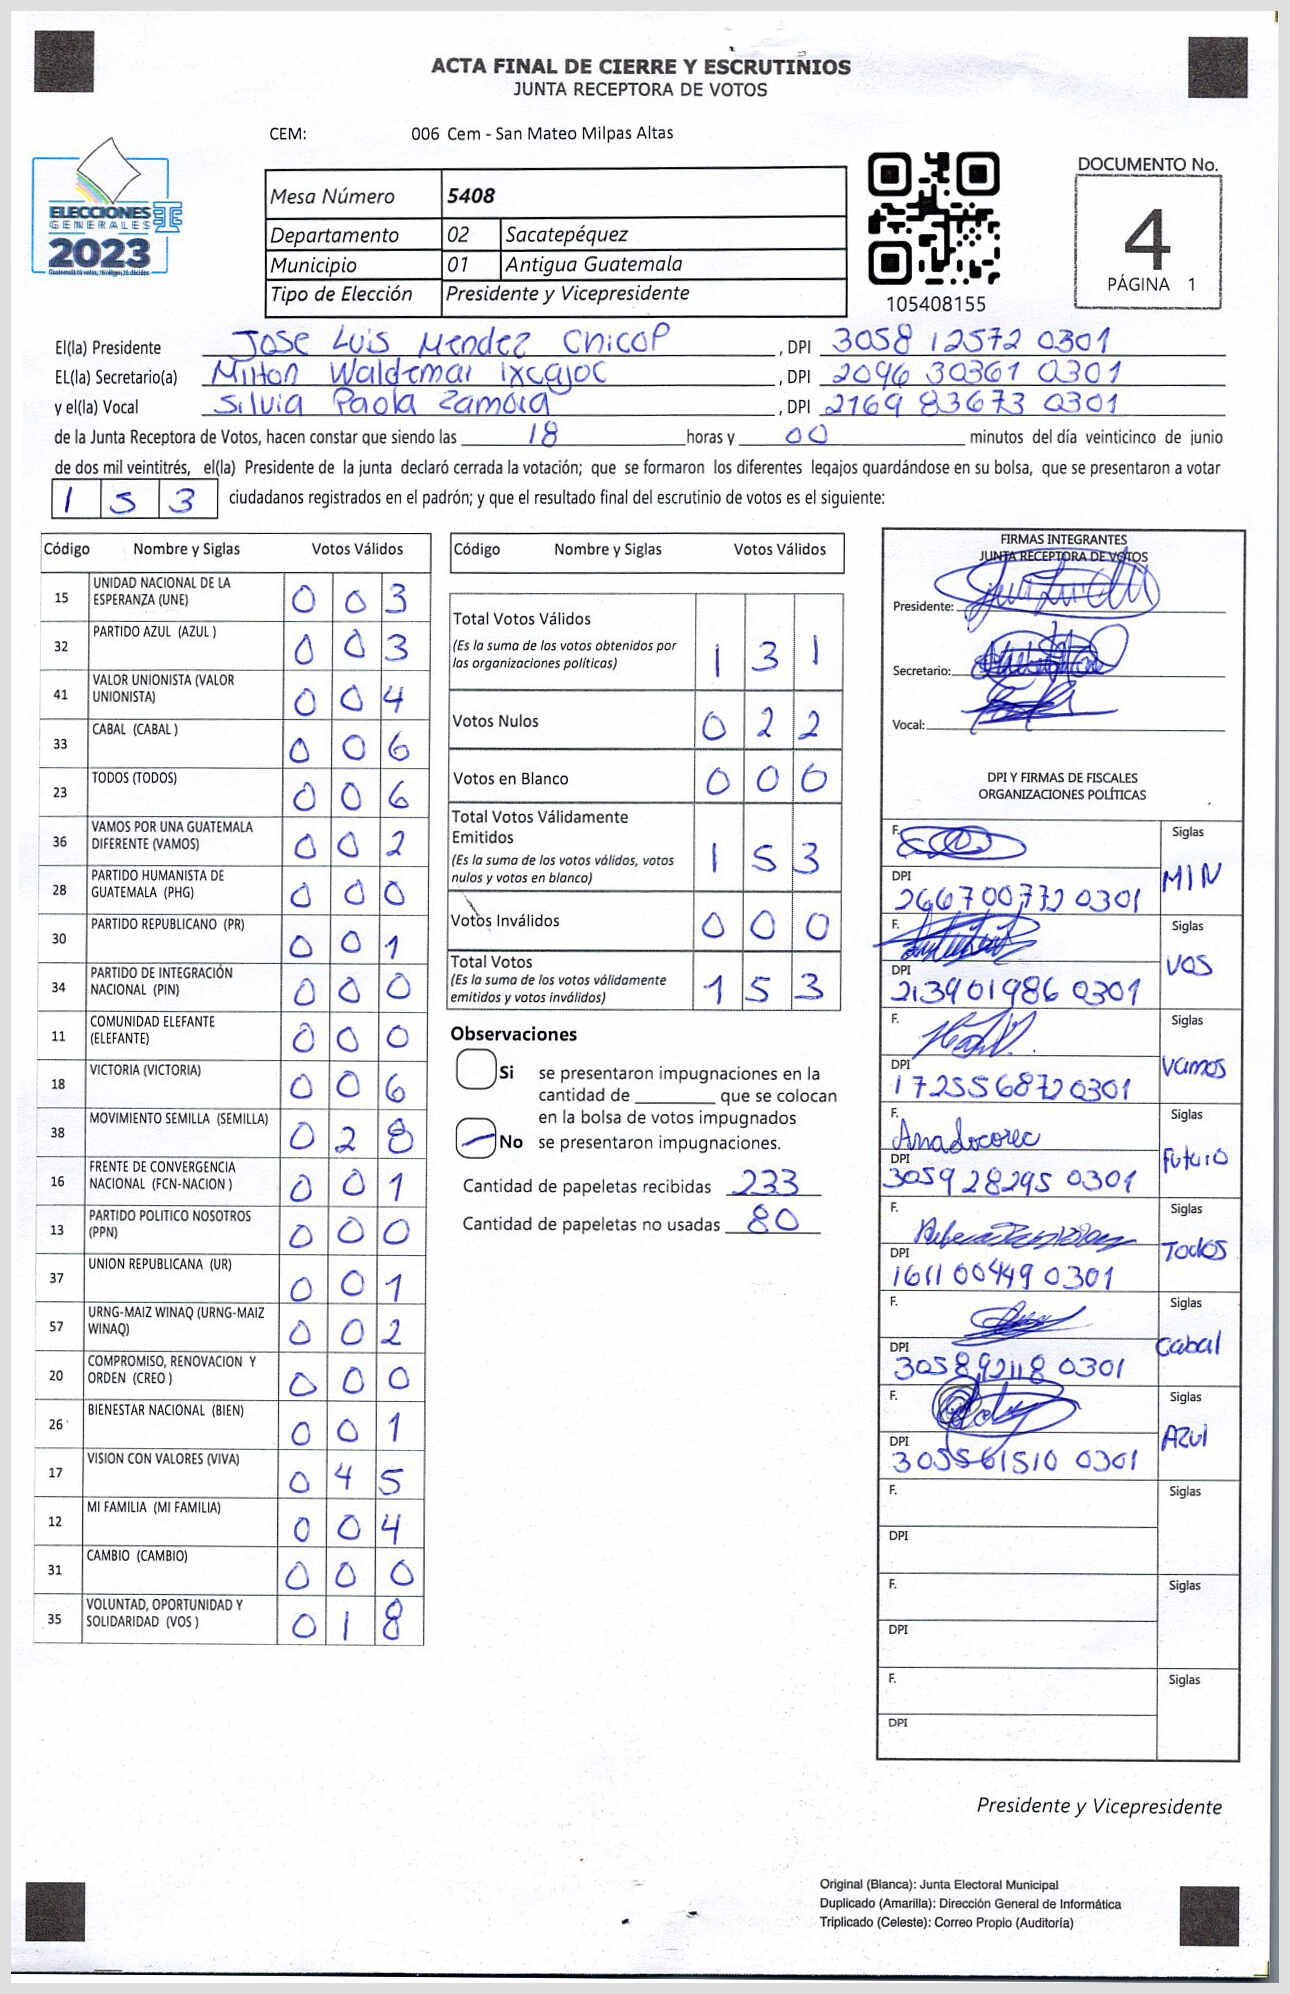 ACTA FINAL DE CIERRE Y ESCRUTINIOS
JUNTA RECEPTORA DE VOTOS
CEM: 006 Cem - San Mateo Milpas Altas
ELECCIONES
GENERALES
2023
Mesa Número 5408
Departamento 02 Sacatepéquez
Municipio 01 Antigua Guatemala
Tipo de Elección Presidente y Vicepresidente
105408155
DOCUMENTO No.
4
PÁGINA 1
El(la) Presidente Jose Luis Mendez Chicop , DPI 3058 12572 0301
EL(la) Secretario(a) Milton Waldemar Ixcajoc , DPI 2096 30361 0301
y el(la) Vocal Silvia Paola Zamora , DPI 2169 83673 0301
de la Junta Receptora de Votos, hacen constar que siendo las 18 horas y 00 minutos del día veinticinco de junio
de dos mil veintitrés, el(la) Presidente de la junta declaró cerrada la votación; que se formaron los diferentes legajos guardándose en su bolsa, que se presentaron a votar
1 5 3 ciudadanos registrados en el padrón; y que el resultado final del escrutinio de votos es el siguiente:
Código Nombre y Siglas Votos Válidos
15 UNIDAD NACIONAL DE LA ESPERANZA (UNE) 0 0 3
32 PARTIDO AZUL (AZUL ) 0 0 3
41 VALOR UNIONISTA (VALOR UNIONISTA) 0 0 4
33 CABAL (CABAL ) 0 0 6
23 TODOS (TODOS) 0 0 6
36 VAMOS POR UNA GUATEMALA DIFERENTE (VAMOS) 0 0 2
28 PARTIDO HUMANISTA DE GUATEMALA (PHG) 0 0 0
30 PARTIDO REPUBLICANO (PR) 0 0 1
34 PARTIDO DE INTEGRACIÓN NACIONAL (PIN) 0 0 0
11 COMUNIDAD ELEFANTE (ELEFANTE) 0 0 0
18 VICTORIA (VICTORIA) 0 0 6
38 MOVIMIENTO SEMILLA (SEMILLA) 0 2 8
16 FRENTE DE CONVERGENCIA NACIONAL (FCN-NACION ) 0 0 1
13 PARTIDO POLITICO NOSOTROS (PPN) 0 0 0
37 UNION REPUBLICANA (UR) 0 0 1
57 URNG-MAIZ WINAQ (URNG-MAIZ WINAQ) 0 0 2
20 COMPROMISO, RENOVACION Y ORDEN (CREO ) 0 0 0
26 BIENESTAR NACIONAL (BIEN) 0 0 1
17 VISION CON VALORES (VIVA) 0 4 5
12 MI FAMILIA (MI FAMILIA) 0 0 4
31 CAMBIO (CAMBIO) 0 0 0
35 VOLUNTAD, OPORTUNIDAD Y SOLIDARIDAD (VOS ) 0 1 8
Código Nombre y Siglas Votos Válidos
Total Votos Válidos
(Es la suma de los votos obtenidos por
las organizaciones políticas) 1 3 1
Votos Nulos 0 2 2
Votos en Blanco 0 0 0
Total Votos Válidamente
Emitidos
(Es la suma de los votos válidos, votos
nulos y votos en blanco) 1 5 3
Votos Inválidos 0 0 0
Total Votos
(Es la suma de los votos válidamente
emitidos y votos inválidos) 1 5 3
Observaciones
Si se presentaron impugnaciones en la
cantidad de ________ que se colocan
en la bolsa de votos impugnados
No se presentaron impugnaciones.
Cantidad de papeletas recibidas 233
Cantidad de papeletas no usadas 80
FIRMAS INTEGRANTES
JUNTA RECEPTORA DE VOTOS
Presidente:
Secretario:
Vocal:
DPI Y FIRMAS DE FISCALES
ORGANIZACIONES POLÍTICAS
F. Siglas
DPI MIN
266700772 0301
F. Siglas
DPI VOS
213901986 0301
F. Siglas
DPI Vamos
172556872 0301
F. Siglas
DPI Futuro
3059 28295 0301
F. Siglas
DPI Todos
1611 00449 0301
F. Siglas
DPI Cabal
305892118 0301
F. Siglas
DPI Azul
305561510 0301
F. Siglas
DPI
F. Siglas
DPI
F. Siglas
DPI
Presidente y Vicepresidente
Original (Blanca): Junta Electoral Municipal
Duplicado (Amarilla): Dirección General de Informática
Triplicado (Celeste): Correo Propio (Auditoría)